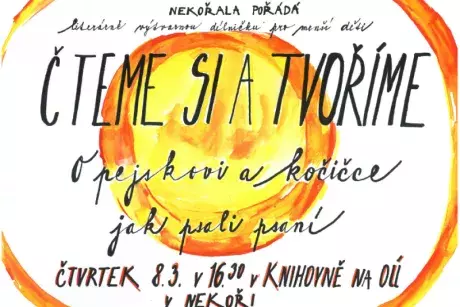 NEKOŘALA POŘÁDÁ
literárně výtvarnou dílničku pro menší děti
ČTEME SI A TVOŘÍME
O pejskovi a kočičce
jak psali psaní
ČTVRTEK 8.3. V 16.30 V KNIHOVNĚ NA OÚ
V NEKOŘI